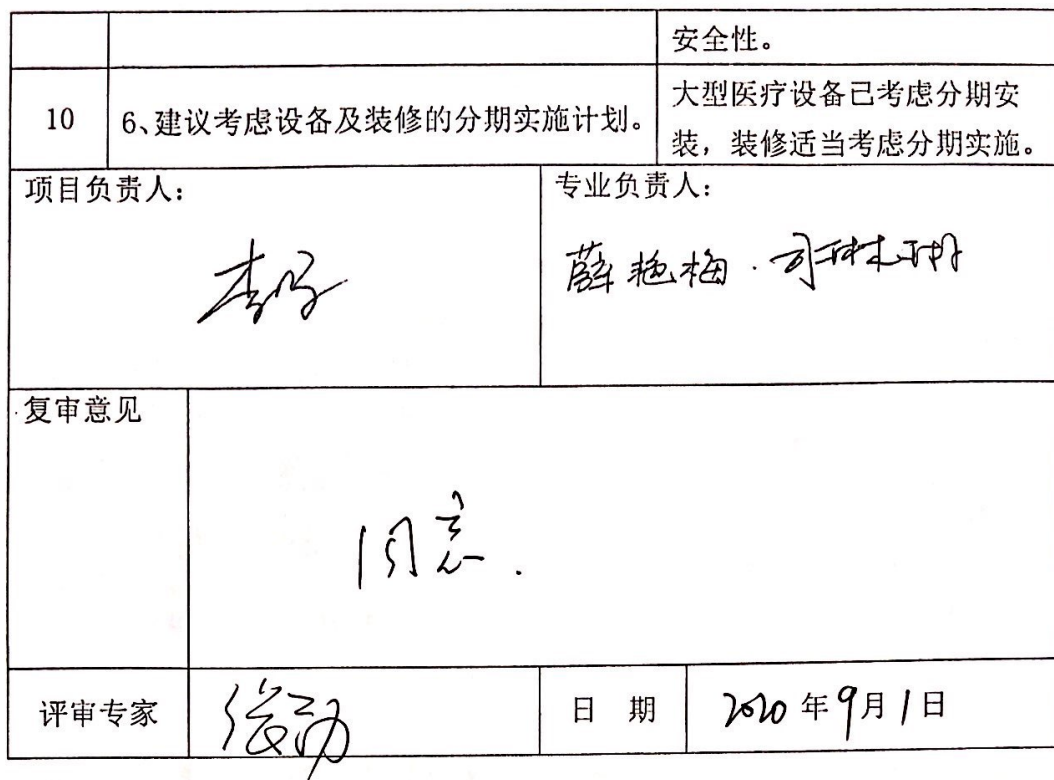 安全性。
10 6、建议考虑设备及装修的分期实施计划。 大型医疗设备已考虑分期安
装，装修适当考虑分期实施。
项目负责人： 专业负责人：
薛艳梅
复审意见
同意.
评审专家 日 期 2020年9月1日